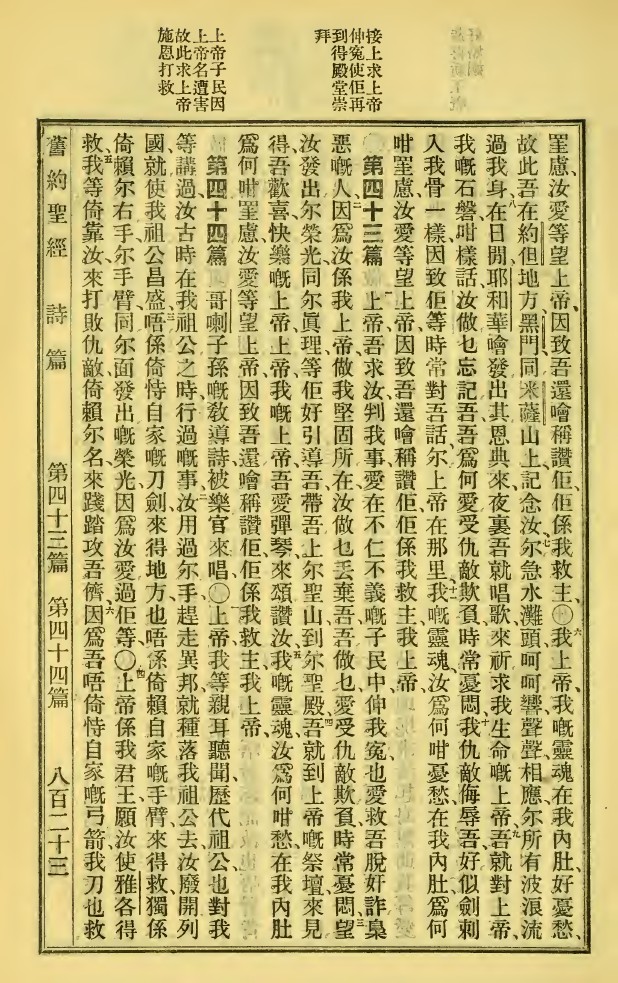 接上求上帝
伸寃使佢再
到得殿堂崇
拜
上帝子民因
上帝名遭害
故此求上帝
施恩打救
罣慮汝愛等望上帝因致吾還噲稱讚佢佢係我救主〇六我上帝我嘅靈魂在我內肚好憂愁
故此吾在約但地方黑門同米薩山上記念汝七尔急水灘頭呵呵響聲聲相應尔所有波浪流
過我身八在日間耶和華噲發出其恩典來夜裏吾就唱歌來祈求我生命嘅上帝九吾就對上帝
我嘅石磐咁樣話汝做乜忘記吾吾爲何愛受仇敵欺負時常憂悶十我仇敵侮辱吾好似劍刺
入我骨一樣因致佢等時常對吾話尔上帝在那里十一我嘅靈魂汝爲何咁憂愁在我內肚爲何
咁罣慮汝愛等望上帝因致吾還噲稱讚佢佢係我救主我上帝
第四十三篇 一上帝吾求汝判我事愛在不仁不義嘅子民中伸我寃也愛救吾脫奸詐梟
惡嘅人二因爲汝係我上帝做我堅固所在汝做乜丢棄吾吾做乜愛受仇敵欺負時常憂悶三望
汝發出尔榮光同尔眞理等佢好引導吾帶吾上尔聖山到尔聖殿四吾就到上帝嘅祭壇來見
得吾歡喜快樂嘅上帝上帝我嘅上帝吾愛彈琴來頌讚汝五我嘅靈魂汝爲何咁愁在我內肚
爲何咁罣慮汝愛等望上帝因致吾還噲稱讚佢佢係我救主我上帝
第四十四篇 哥喇子孫嘅教導詩被樂官來唱〇一上帝我等親耳聽聞歷代祖公也對我
等講過汝古時在我祖公之時行過嘅事二汝用過尔手趕走異邦就種落我祖公去汝廢開列
國就使我祖公昌盛三唔係倚恃自家嘅刀劍來得地方也唔係倚賴自家嘅手臂來得救獨係
倚賴尔右手尔手臂同尔面發出嘅榮光因爲汝愛過佢等〇四上帝係我君王願汝使雅各得
救五我等倚靠汝來打敗仇敵倚賴尔名來踐踏攻吾儕六因爲吾唔倚恃自家嘅弓箭我刀也救
舊約聖經 詩篇 第四十三篇 第四十四篇 八百二十三